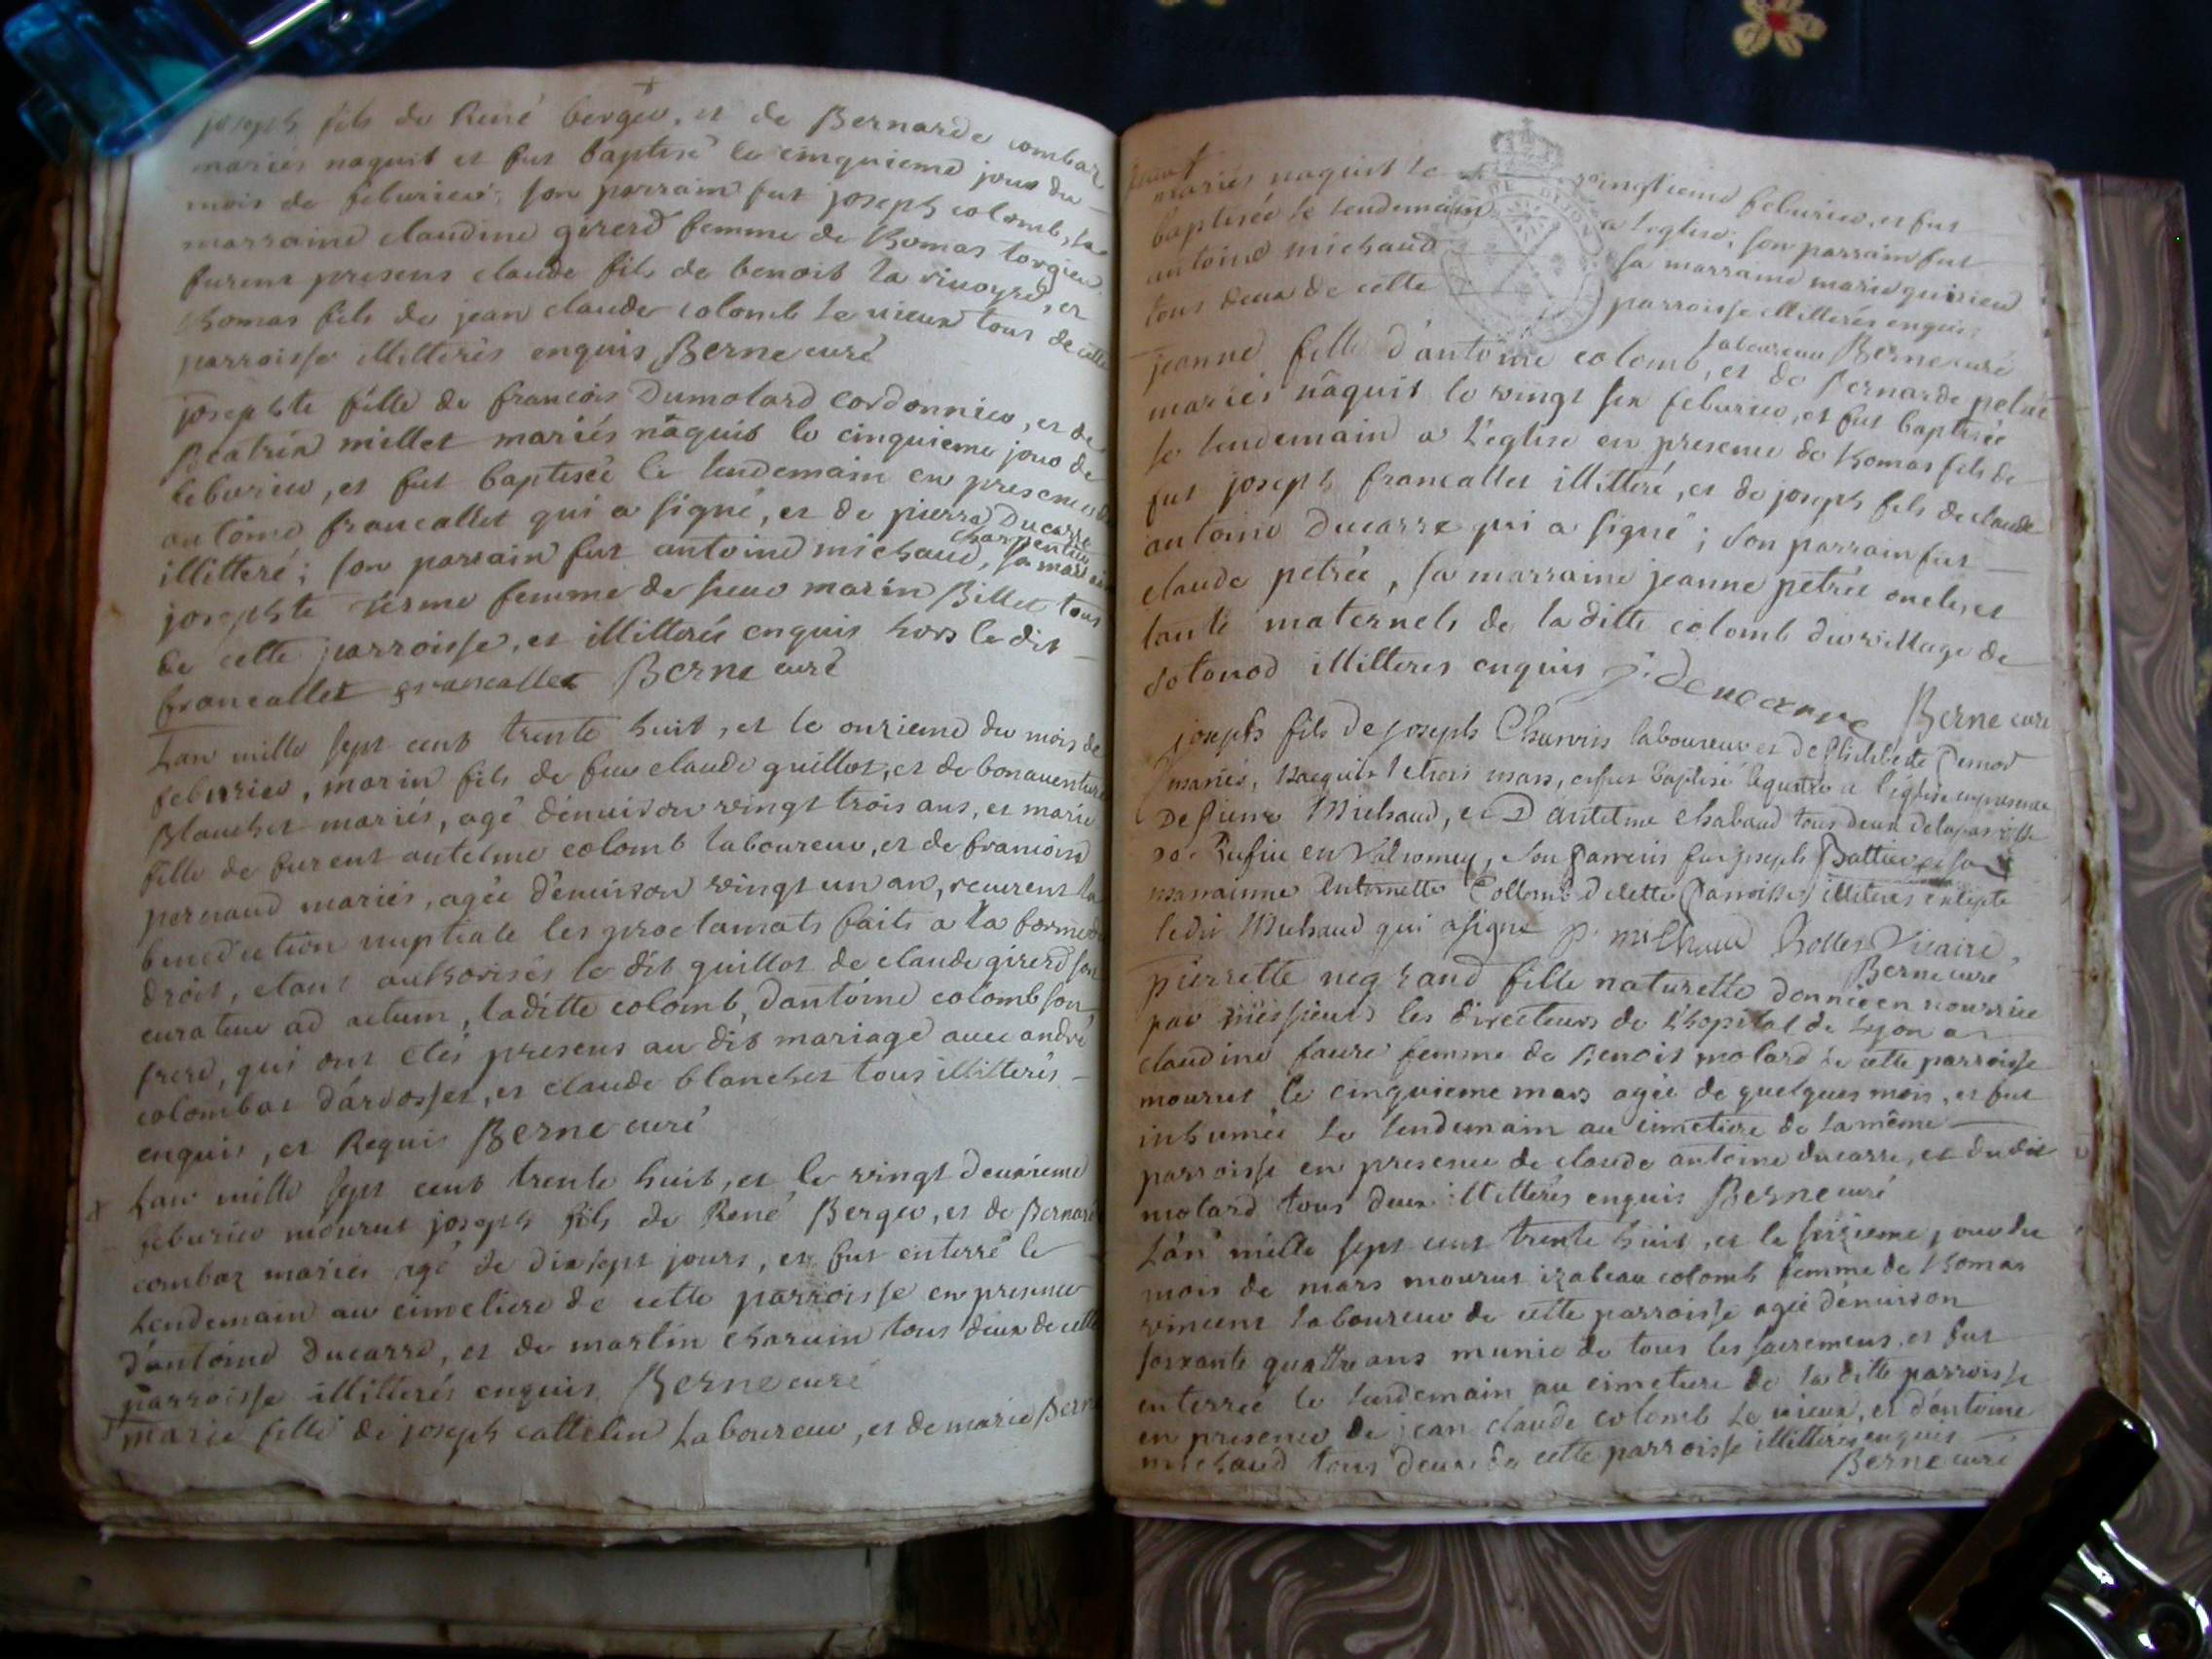 joseph fils de René berger, et de Bernarde combaz
mariés naquit et fut baptisé le cinquieme jour du
mois de feburier; son parrain fut joseph colomb, sa
marraine claudine girerd femme de thomas torgieu
furent presens claude fils de benoit la riuoyre, et
thomas fils de jean claude colomb le uieux tous de cette
parroisse illitterés enquis Berne curé
josephte fille de francois Dumolard cordonnier, et de
Beatrix millet mariés naquit le cinquieme jour de
feburier, et fut baptiseé le lendemain en presence de
antoine francallet qui a signé, et de pierre Ducarre
charpentier
illitteré; son parrain fut antoine michaud, sa marraine
josephte femme de sieur marin Billet tous
de cette parroisse, et illitterés enquis hors le dit
francallet francallet Berne curé
Lan mille sept cent trente huit, et le onzieme du mois de
feburier, marin fils de feu claude guillot, et de bonauenture
Blanchet mariés, agé d'enuiron vingt trois ans, et marie
fille de furent antelme colomb laboureur, et de francoise
pernaud mariés, ageé d'enuiron vingt un an, receurent la
benediction nuptiale les proclamats faits a la forme du
droit, etant authorisés le dit guillot de claude girerd son
curateur ad actum, laditte colomb, d'antoine colomb son
frere, qui ont etés presens au dit mariage auec andré
colombat d'ardosset, et claude blanchet tous illitterés
enquis, et Requis Berne curé
Lan mille sept cent trente huit, et le vingt deuxieme
feburier mourut joseph fils de René Berger, et de Bernarde
combaz mariés agé de dix sept jours, et fut enterré le
lendemain au cimetiere de cette parroisse en presence
d'antoine Ducarre, et de martin charuin tous deux de cette
parroisse illitterés enquis Berne curé
marie fille de joseph cattelin Laboureur, et de marie Berne
mariés naquit le vingtieme feburier, et fut
baptiseé le lendemain a leglise; son parrain fut
antoine michaud sa marraine marie quinieu
tous deux de cette parroisse illitterés enquis
Berne curé
laboureur
jeanne fille d'antoine colomb, et de Bernarde petrée
mariés naquit le vingt six feburier, et fut baptiseé
le lendemain a l'eglise en presence de thomas fils de
fut joseph francallet illitteré, et de joseph fils de claude
antoine Ducarre qui a signé; son parrain fut
claude petreé, sa marraine jeanne petreé oncle, et
tante maternels de laditte colomb du village de
sotonod illitteres enquis j. deucarre Berne curé
joseph fils de joseph Charvin laboureur et de Philiberte Pernod
mariés, nacquit le trois mars, et fut baptisé le quatre a l'église en presence
de Pierre Michaud, et D'antelme Chabaud tous deux de la paroisse
de Rufieu en Valromey, son Parrein fut joseph Battier et sa
marrainne Antoinette Collomb de cette Parroisse, illiteres excepte
ledit Michaud qui a signé p. michaud Bollet Vicaire,
Berne curé
pierrette negrand fille naturelle donneé en nourrice
par messieurs les directeurs de l'hopital de Lyon a
claudine faure femme de Benoit molard de cette parroisse
mourut le cinquieme mars ageé de quelques mois, et fut
inhumeé le lendemain au cimetiere de la même
parroisse en presence de claude antoine ducarre, et du dit
molard tous deux illitterés enquis Berne curé
L'an mille sept cent trente huit, et le seizieme jour du
mois de mars mourut izabeau colomb femme de thomas
vincent laboureur de cette parroisse ageé d'enuiron
soixante quattre ans munie de tous les sacremens, et fut
enterreé le lendemain au cimetiere de la ditte parroisse
en presence de jean claude colomb le uieux, et d'antoine
michaud tous deux de cette parroisse illitterés enquis
Berne curé